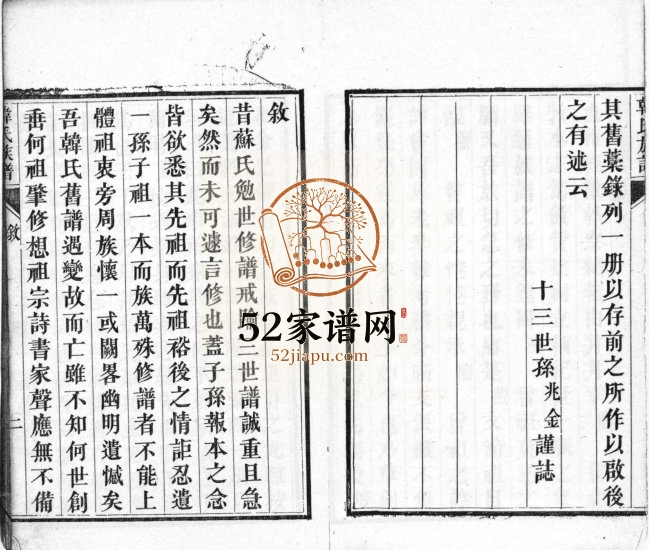 韓氏族譜
其舊藁錄列一册以存前之所作以啟後
之有述云
十三世孫兆金謹誌
敘
昔蘇氏勉世修譜戒 三世譜誠重且急
矣然而未可遽言修也蓋子孫報本之念
皆欲悉其先祖而先祖裕後之情詎忍遺
一孫子祖一本而族萬殊修譜者不能上
體祖衷旁周族懷一或闕畧幽明遺憾矣
吾韓氏舊譜遇變故而亡雖不知何世創
垂何祖肇修想祖宗詩書家聲應無不備
韓氏族譜
敘
二
52家谱网
52jiapu.com